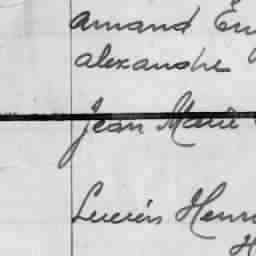 Amand Eu
Alexandre
Jean Marie
Lucien Henri
H